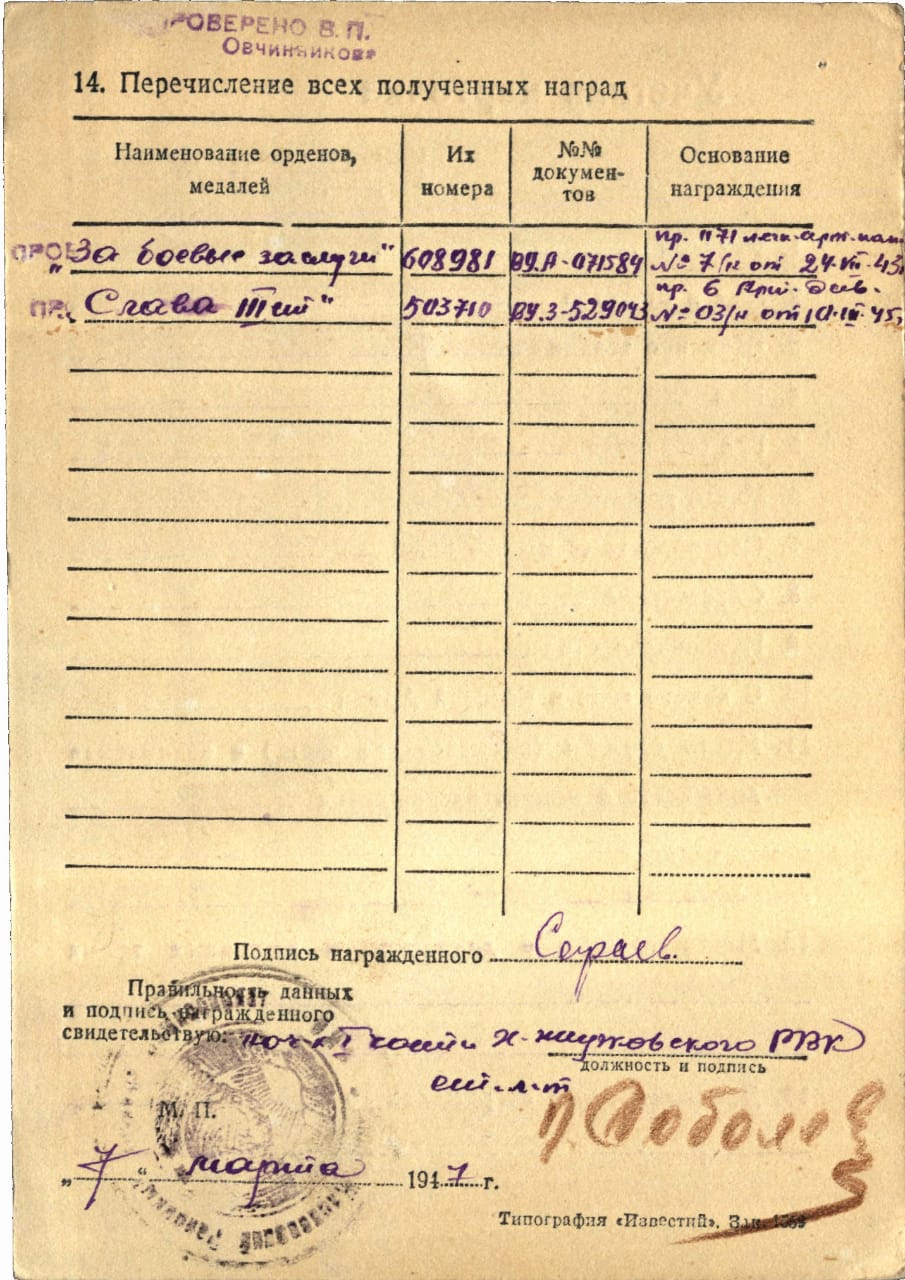 ПРОВЕРЕНО В. П.
Овчинникова
14. Перечисление всех полученных наград
Наименование орденов, медалей
Их номера
№№ докумен-тов
Основание награждения
"За боевые заслуги" 608981 ВУ.А-071584 пр. 1171 арт. №7/н от 24-VII-43
"Слава III ей" 503710 ВУ.З-529043 пр. 6 Арт. Див. №03/н от 10-III-45
Подпись награжденного Сараев.
Правильность данных
и подпись награжденного
свидетельствую: РВК
должность и подпись
ст. л-т
М. П.
П. Соболев
„7“ марта 1947 г.
Типография «Известий». Зак. 1569